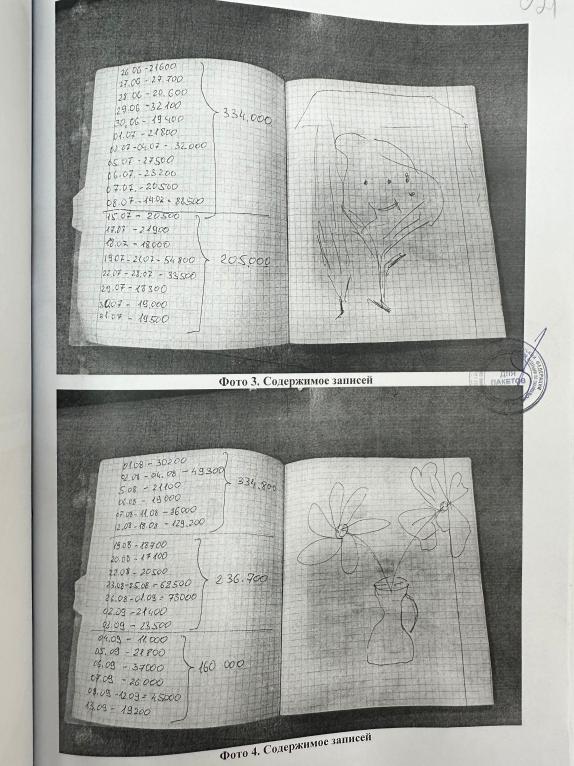 26.06 - 21600
27.06 - 27.700
28.06 - 20.600
29.06 - 32100
30.06 - 19400
01.07 - 21800
02.07 - 04.07 - 32.000
05.07 - 27500
06.07 - 23200
07.07. - 20500
08.07 - 14.07 = 88500
334.000
15.07 - 20500
17.07 - 21900
18.07 - 18000
19.07 - 21.07 - 54800
22.07 - 28.07 - 33500
29.07 - 18300
30.07 - 19.000
31.07 - 19.500
205.000
Фото 3. Содержимое записей
ДЛЯ
ПАКЕТОВ
01.08 - 30200
02.08 - 04.08 - 49300
5.08 - 21100
06.08 - 19000
07.08 - 11.08 - 86000
12.08 - 18.08 - 129.200
334.800
19.08 - 18700
20.08 - 17100
22.08 - 20500
23.08 - 25.08 = 62500
26.08 - 01.09 = 73000
02.09 - 21400
03.09 - 23.500
236.700
04.09 - 11.000
05.09 - 21800
06.09 - 37000
07.09 - 26.000
08.09 - 12.09 = 45000
13.09 - 19200
160 000
Фото 4. Содержимое записей